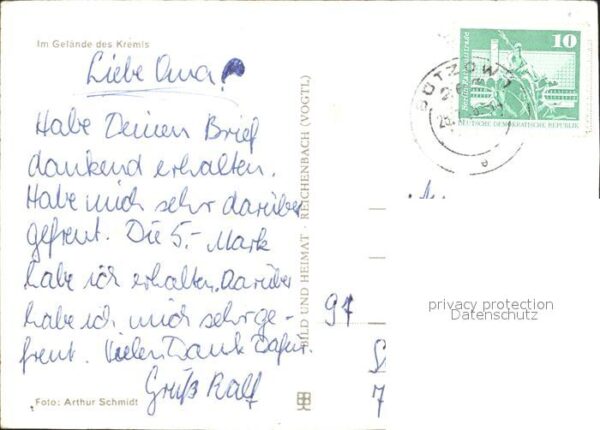 Im Gelände des Kremls
Liebe Oma!
Habe Deinen Brief
dankend erhalten.
Habe mich sehr darüber
gefreut. Die 5,- Mark
habe ich erhalten. Darüber
habe ich mich sehr ge-
freut. Vielen Dank dafür.
Gruß Ralf
Foto: Arthur Schmidt
BILD UND HEIMAT · REICHENBACH (VOGTL)
10
DEUTSCHE DEMOKRATISCHE REPUBLIK
BÜTZOW
privacy protection
Datenschutz